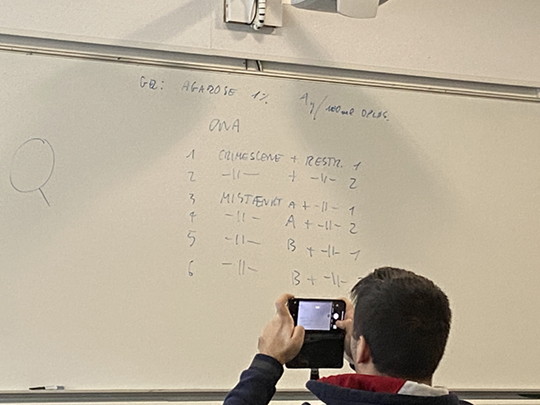 GEL: AGAROSE 1% 1g/100ml OPLØS.
DNA
1 CRIMESCENE + RESTR. 1
2 -||- + -||- 2
3 MISTÆNKT A + -||- 1
4 -||- A + -||- 2
5 -||- B + -||- 1
6 -||- B + -||-